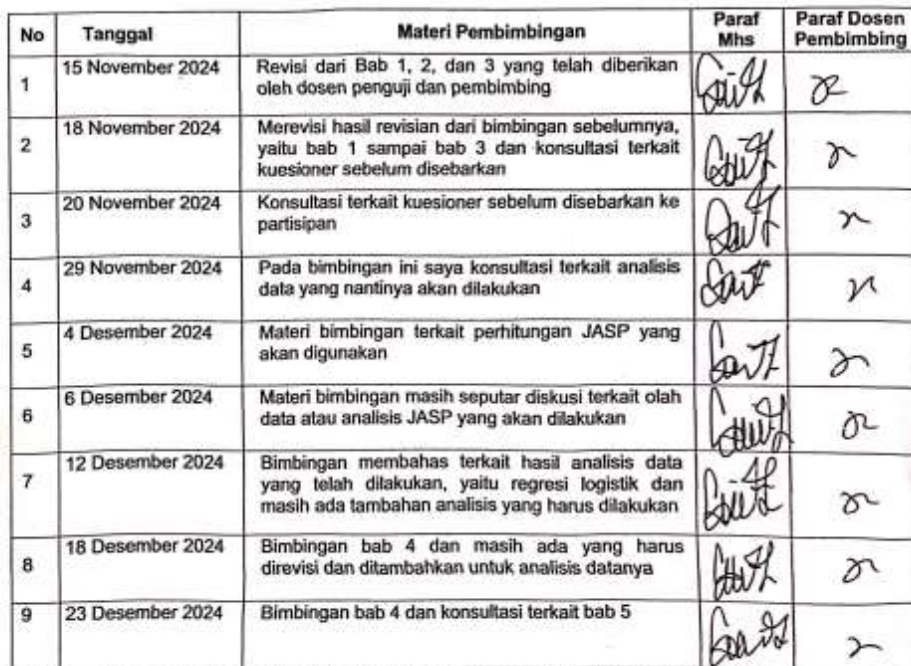 No Tanggal Materi Pembimbingan Paraf Mhs Paraf Dosen Pembimbing
1 15 November 2024 Revisi dari Bab 1, 2, dan 3 yang telah diberikan
oleh dosen penguji dan pembimbing
2 18 November 2024 Merevisi hasil revisian dari bimbingan sebelumnya,
yaitu bab 1 sampai bab 3 dan konsultasi terkait
kuesioner sebelum disebarkan
3 20 November 2024 Konsultasi terkait kuesioner sebelum disebarkan ke
partisipan
4 29 November 2024 Pada bimbingan ini saya konsultasi terkait analisis
data yang nantinya akan dilakukan
5 4 Desember 2024 Materi bimbingan terkait perhitungan JASP yang
akan digunakan
6 6 Desember 2024 Materi bimbingan masih seputar diskusi terkait olah
data atau analisis JASP yang akan dilakukan
7 12 Desember 2024 Bimbingan membahas terkait hasil analisis data
yang telah dilakukan, yaitu regresi logistik dan
masih ada tambahan analisis yang harus dilakukan
8 18 Desember 2024 Bimbingan bab 4 dan masih ada yang harus
direvisi dan ditambahkan untuk analisis datanya
9 23 Desember 2024 Bimbingan bab 4 dan konsultasi terkait bab 5